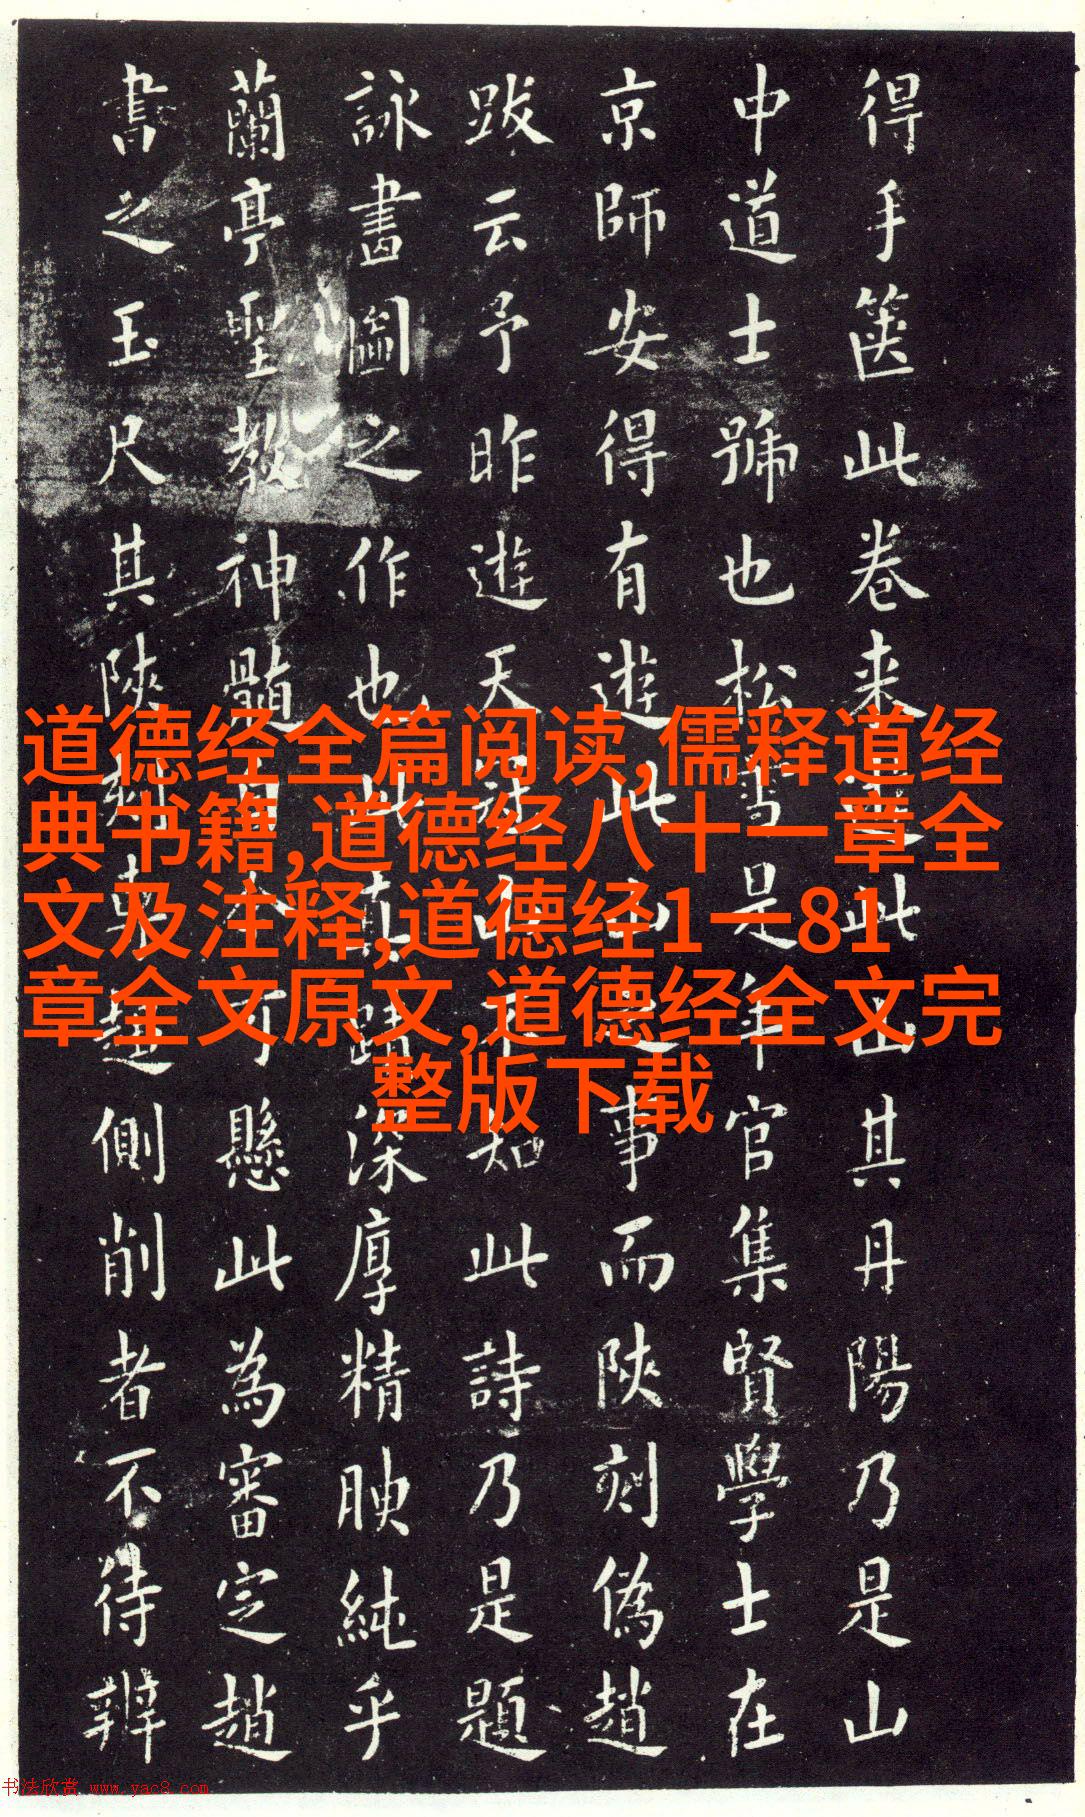 得手篋此卷来此山其丹陽乃是山
中道士號也松雪是年官集賢學士在
京師安得有遊此山之事而陝刻偽趙
跋云予昨遊天冠山不知此詩乃是題
詠畫圖之作也此真蹟深厚精腴純乎
蘭亭聖教神髓可懸此為審定趙
書之玉尺其陝刻專趨側削者不待辨
道德经全篇阅读,儒释道经
典书籍,道德经八十一章全
文及注释,道德经1一81
章全文原文,道德经全文完
整版下载
书法欣赏 www.yac8.com